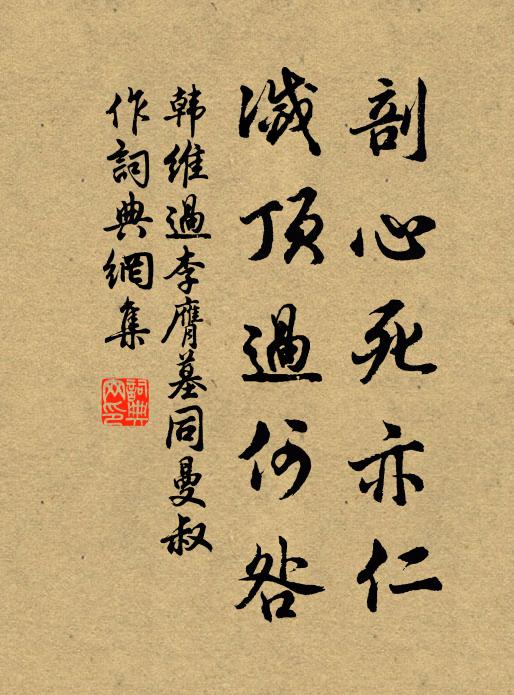 剖心死亦仁
滅頂過何咎
韩維過李膺墓同曼叔
作詞典網集
詞典網印